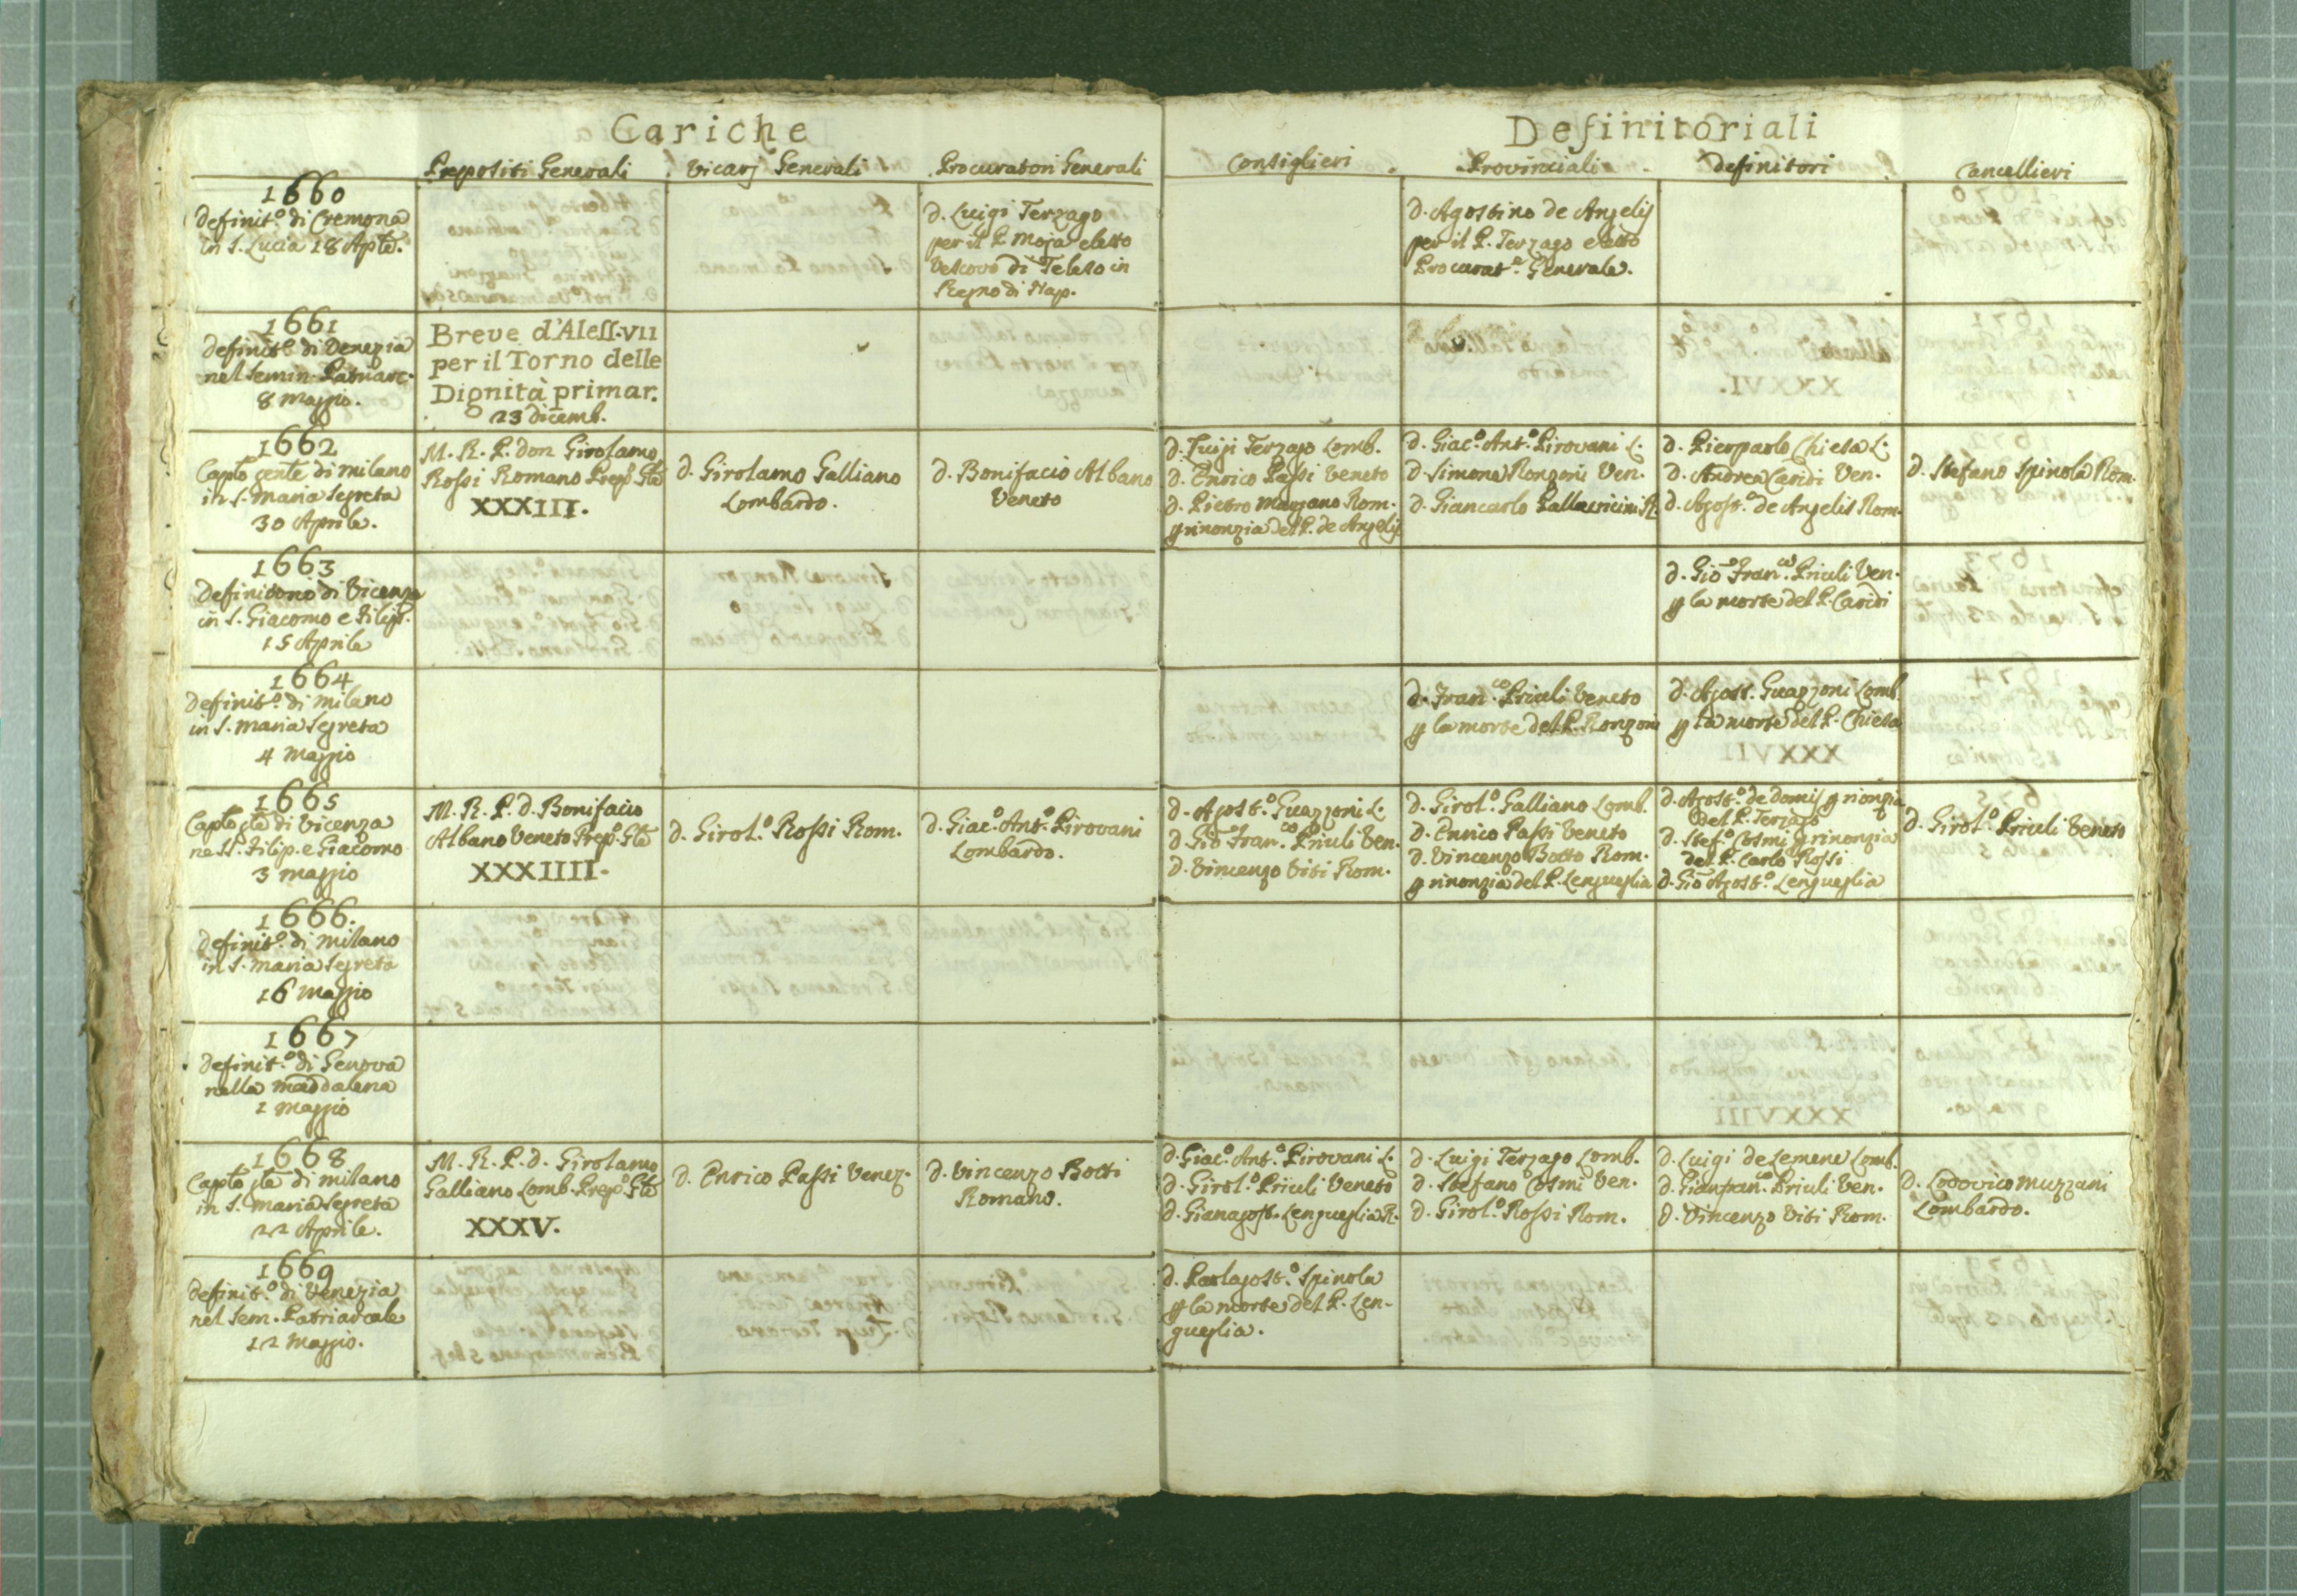 Cariche Definitoriali
Prepositi Generali Vicarj Generali Procuratori Generali Consiglieri Provinciali Definitori Cancellieri
1660
Definit.º di Cremona
in S. Lucia 18 Apłe.
D. Luigi Terzago
per il P. Moja eletto
Vescovo di Teleso in
Regno di Nap.
D. Agostino de Angelis
per il P. Terzago eletto
Procurat.e Generale.
1661
Definit.º di Venezia
nel Semin. Patriarc.
8 Maggio.
Breve d'Aless. VII
per il Torno delle
Dignità primar.
23 dicemb.
1662
Capto gente di Milano
in S. Maria Segreta
30 Aprile.
M. R. P. don Girolamo
Rossi Romano Prep.º Gle
XXXIII.
D. Girolamo Galliano
Lombardo.
D. Bonifacio Albano
Veneto
D. Luigi Terzago Lomb.
D. Enrico Passi Veneto
D. Pietro Mazzano Rom.
p rinonzia del P. de Angelis
D. Giac.º Ant.º Pirovani L.
D. Simone Ronzoni Ven.
D. Giancarlo Pallavicini R.
D. Pierpaolo Chiesa L.
D. Andrea Caridi Ven.
D. Agost.º de Angelis Rom.
D. Stefano Spinola Rom.
1663
Definitorio di Vicenza
in S. Giacomo e Filip.
15 Aprile
D. Gio Fran.co Priuli Ven.
p la morte del P. Caridi
1664
Definit.º di Milano
in S. Maria Segreta
4 Maggio
D. Fran.co Priuli Veneto
p la morte del P. Ronzoni
D. Agost. Guazzoni Lomb.
p la morte del P. Chiesa
1665
Capto gle di Vicenza
ne SS. Filip. e Giacomo
3 maggio
M. R. P. D. Bonifacio
Albano Veneto Prep.º Gle
XXXIIII.
D. Girol.º Rossi Rom.
D. Giac.º Ant.º Pirovani
Lombardo.
D. Agost.º Guazzoni L.
D. Gio Fran.co Priuli Ven.
D. Vincenzo Viti Rom.
D. Girol.º Galliano Lomb.
D. Enrico Passi Veneto
D. Vincenzo Botto Rom.
p rinonzia del P. Lengueglia
D. Agost.º de Domis p rionzia
del P. Terzago
D. Stef.º Cosmi p rinonzia
del P. Carlo Rossi
D. Gio Agost.º Lengueglia
D. Girol.º Priuli Veneto
1666.
Definit.º di Milano
in S. Maria Segreta
16 Maggio
1667
Definit.º di Genova
nella Maddalena
1 Maggio
1668
Capto gle di Milano
in S. Maria Segreta
22 Aprile.
M. R. P. D. Girolamo
Galliano Lomb. Prep.º Gle
XXXV.
D. Enrico Passi Venez.
D. Vincenzo Botti
Romano.
D. Giac.º Ant.º Pirovani L.
D. Girol.º Priuli Veneto
D. Gianagost. Lengueglia R.
D. Luigi Terzago Lomb.
D. Stefano Cosmi Ven.
D. Girol.º Rossi Rom.
D. Luigi de Lemene Lomb.
D. Gianfran.co Priuli Ven.
D. Vincenzo Viti Rom.
D. Lodovico Muzzani
Lombardo.
1669
Definit.º di Venezia
nel Sem. Patriarcale
12 Maggio.
D. Paolagost.º Spinola
p la morte del P. Len-
gueglia.